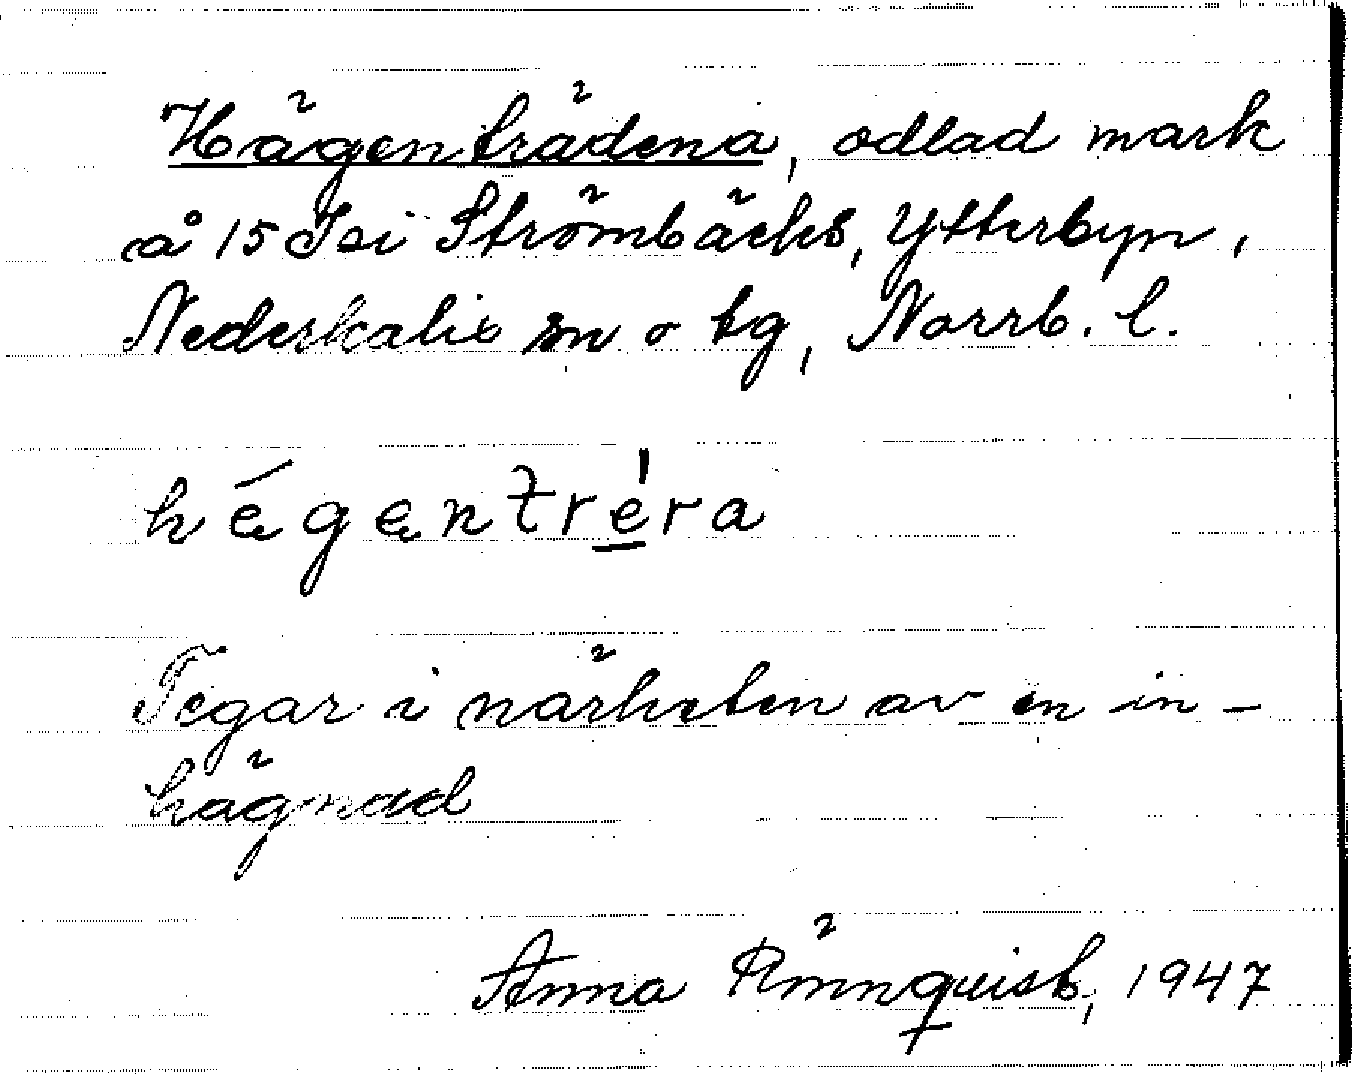 Hägenträdena, odlad mark
å 15 Isi Strömbäcks, Ytterbyn,
Nederkalix sn o tg, Norrb. l.
hę́gęntréra
Tegar i närheten av en in-
hägnad
Anna Rönnquist, 1947